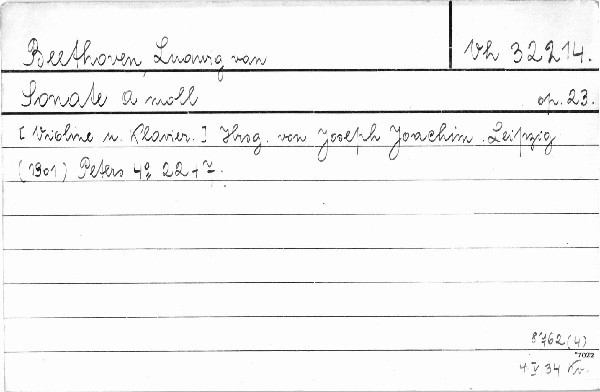 Beethoven, Ludwig van
Vh 32214.
Sonate A moll op. 23.
[Violine u. Klavier.] Hrsg. von Joseph Joachim. Leipzig
(1901) Peters 4° 22 +
8762(4)
*7022
4 V 34